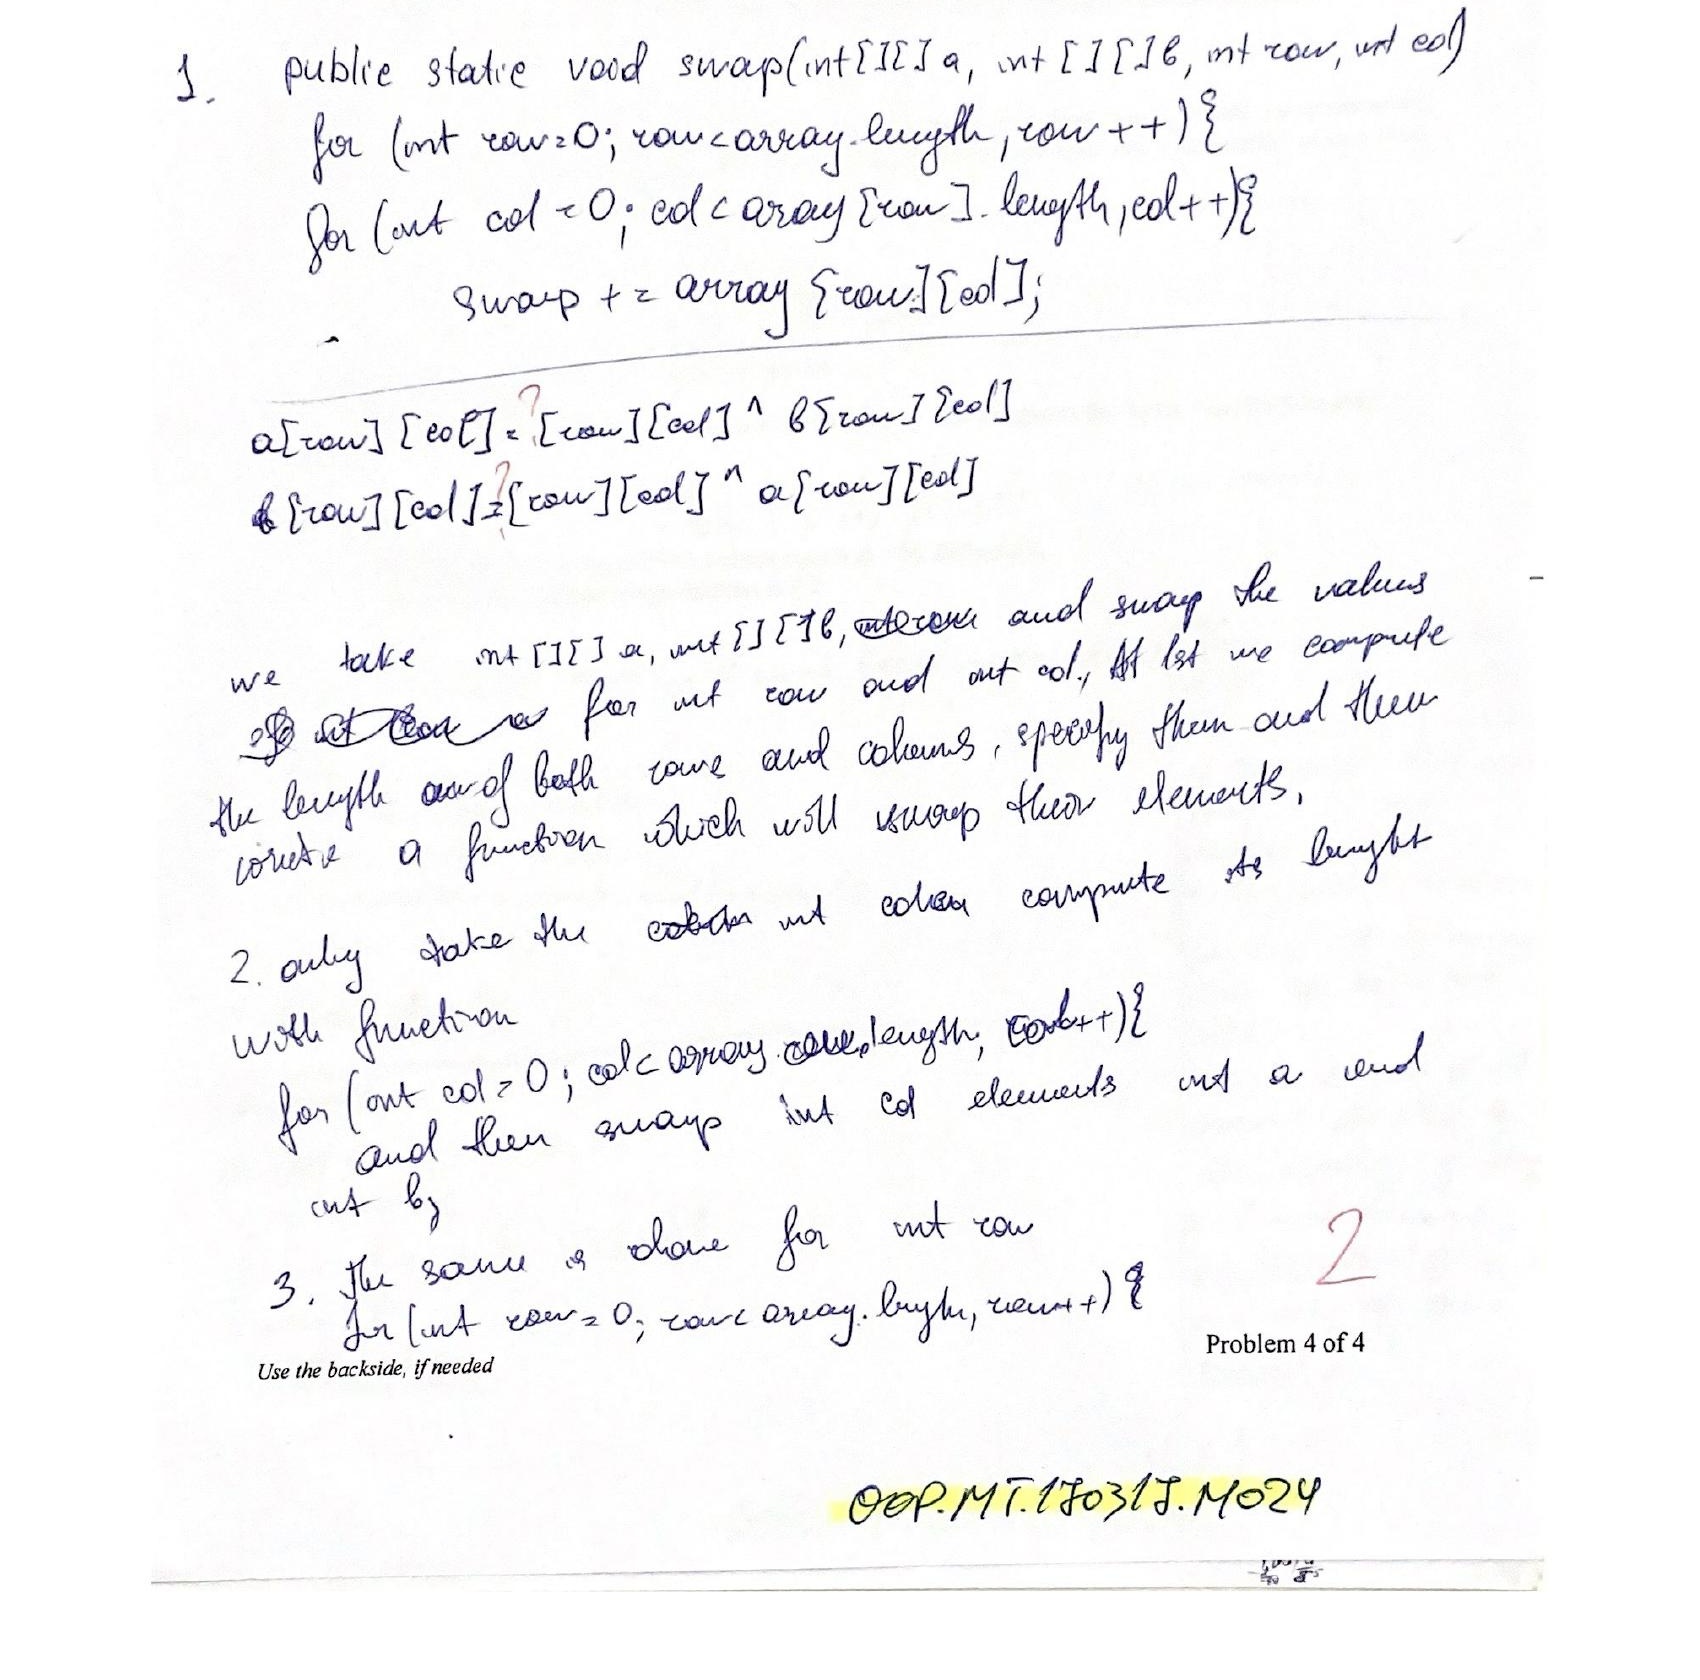 1. public static void swap(int[][] a, int [][] b, int row, int col)
for (int row=0; row<array.length, row++){
for (int col=0; col<array[row].length, col++){
swap += array[row][col];
a[row][col] = [row][col] ^ b[row][col]
?
b[row][col] = [row][col] ^ a[row][col]
?
we take int [][] a, int [][] b, and swap the values
for int row and int col., At 1st we compute
the length of both rows and columns, specify them and then
a function which will swap their elements.
2. only take the int compute its lenght
with function
for (int col=0; col<array length, col++){
and then swap int col elements int a and
int b;
3. The same is done for int row
for (int row=0; row<array. row++){
2
Use the backside, if needed
Problem 4 of 4
OOP.MT.170317.M024